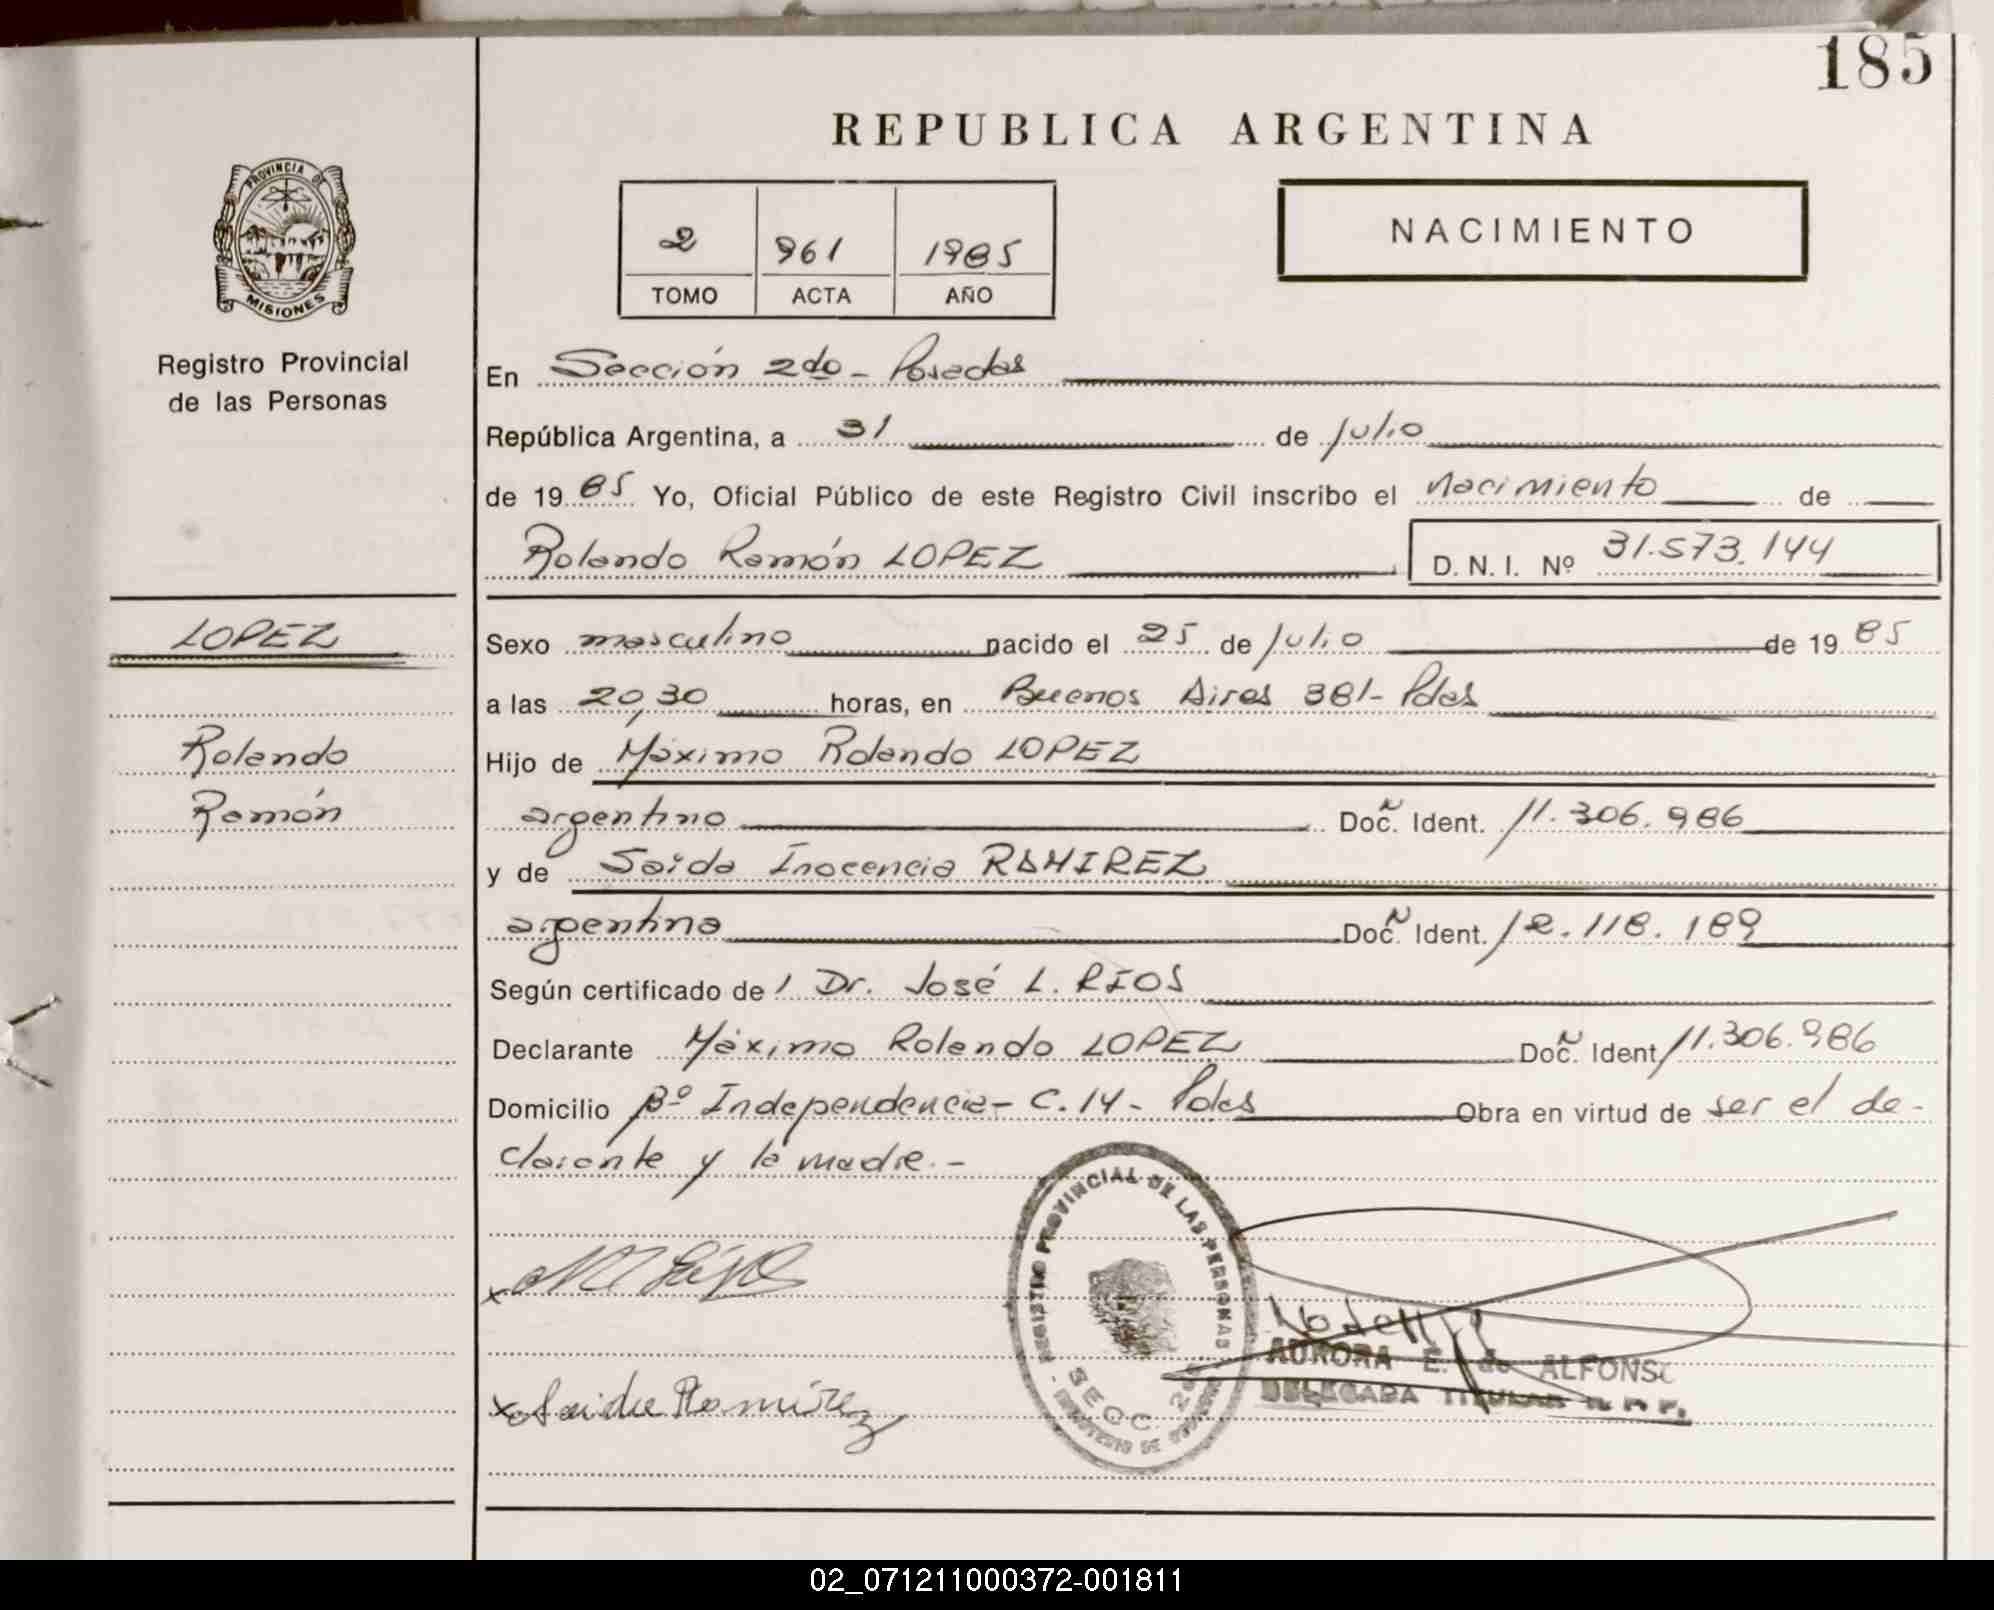 185
REPUBLICA ARGENTINA
PROVINCIA DE
MISIONES
Registro Provincial
de las Personas
2 961 1985
TOMO ACTA AÑO
NACIMIENTO
En Sección 2do - Posadas
República Argentina, a 31 de Julio
de 19 85 Yo, Oficial Público de este Registro Civil inscribo el nacimiento de
Rolando Ramón LOPEZ D. N. I. Nº 31.573.144
LOPEZ
Rolando
Ramón
Sexo masculino nacido el 25 de Julio de 19 85
a las 20,30 horas, en Buenos Aires 381 - Pdas
Hijo de Máximo Rolando LOPEZ
argentino Doc. Ident. 11.306.986
y de Saida Inocencia RAMIREZ
argentina Doc. Ident. 12.118.189
Según certificado de Dr. José L. RIOS
Declarante Máximo Rolando LOPEZ Doc. Ident 11.306.986
Domicilio Bº Independencia - C. 14 - Pdas Obra en virtud de ser el de-
clarante y la madre.-
REGISTRO PROVINCIAL DE LAS PERSONAS
SECC. 2da
MINISTERIO DE
AURORA E. de ALFONSO
DELEGADA TITULAR R. P. P.
x Saida Ramírez
02_071211000372-001811